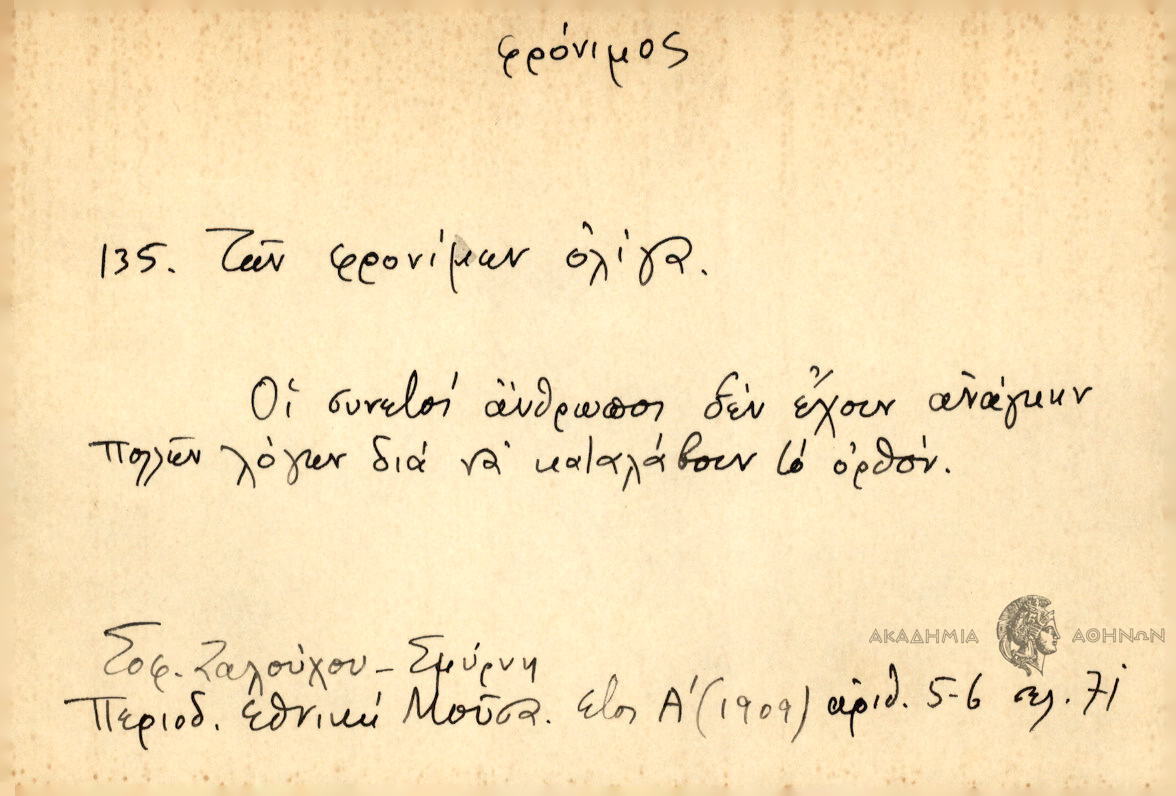 φρόνιμος
135. Τῶν φρονίμων ὀλίγα.
Οἱ συνετοί ἄνθρωποι δέν ἔχουν ἀνάγκην
πολλῶν λόγων διά νά καταλάβουν τό ὀρθόν.
Σοφ. Ζαλούχου – Σμύρνη
Περιοδ. Ἐθνική Μοῦσα. ἔτος Α΄ (1909) ἀριθ. 5-6 σελ. 71
ΑΚΑΔΗΜΙΑ ΑΘΗΝΩΝ